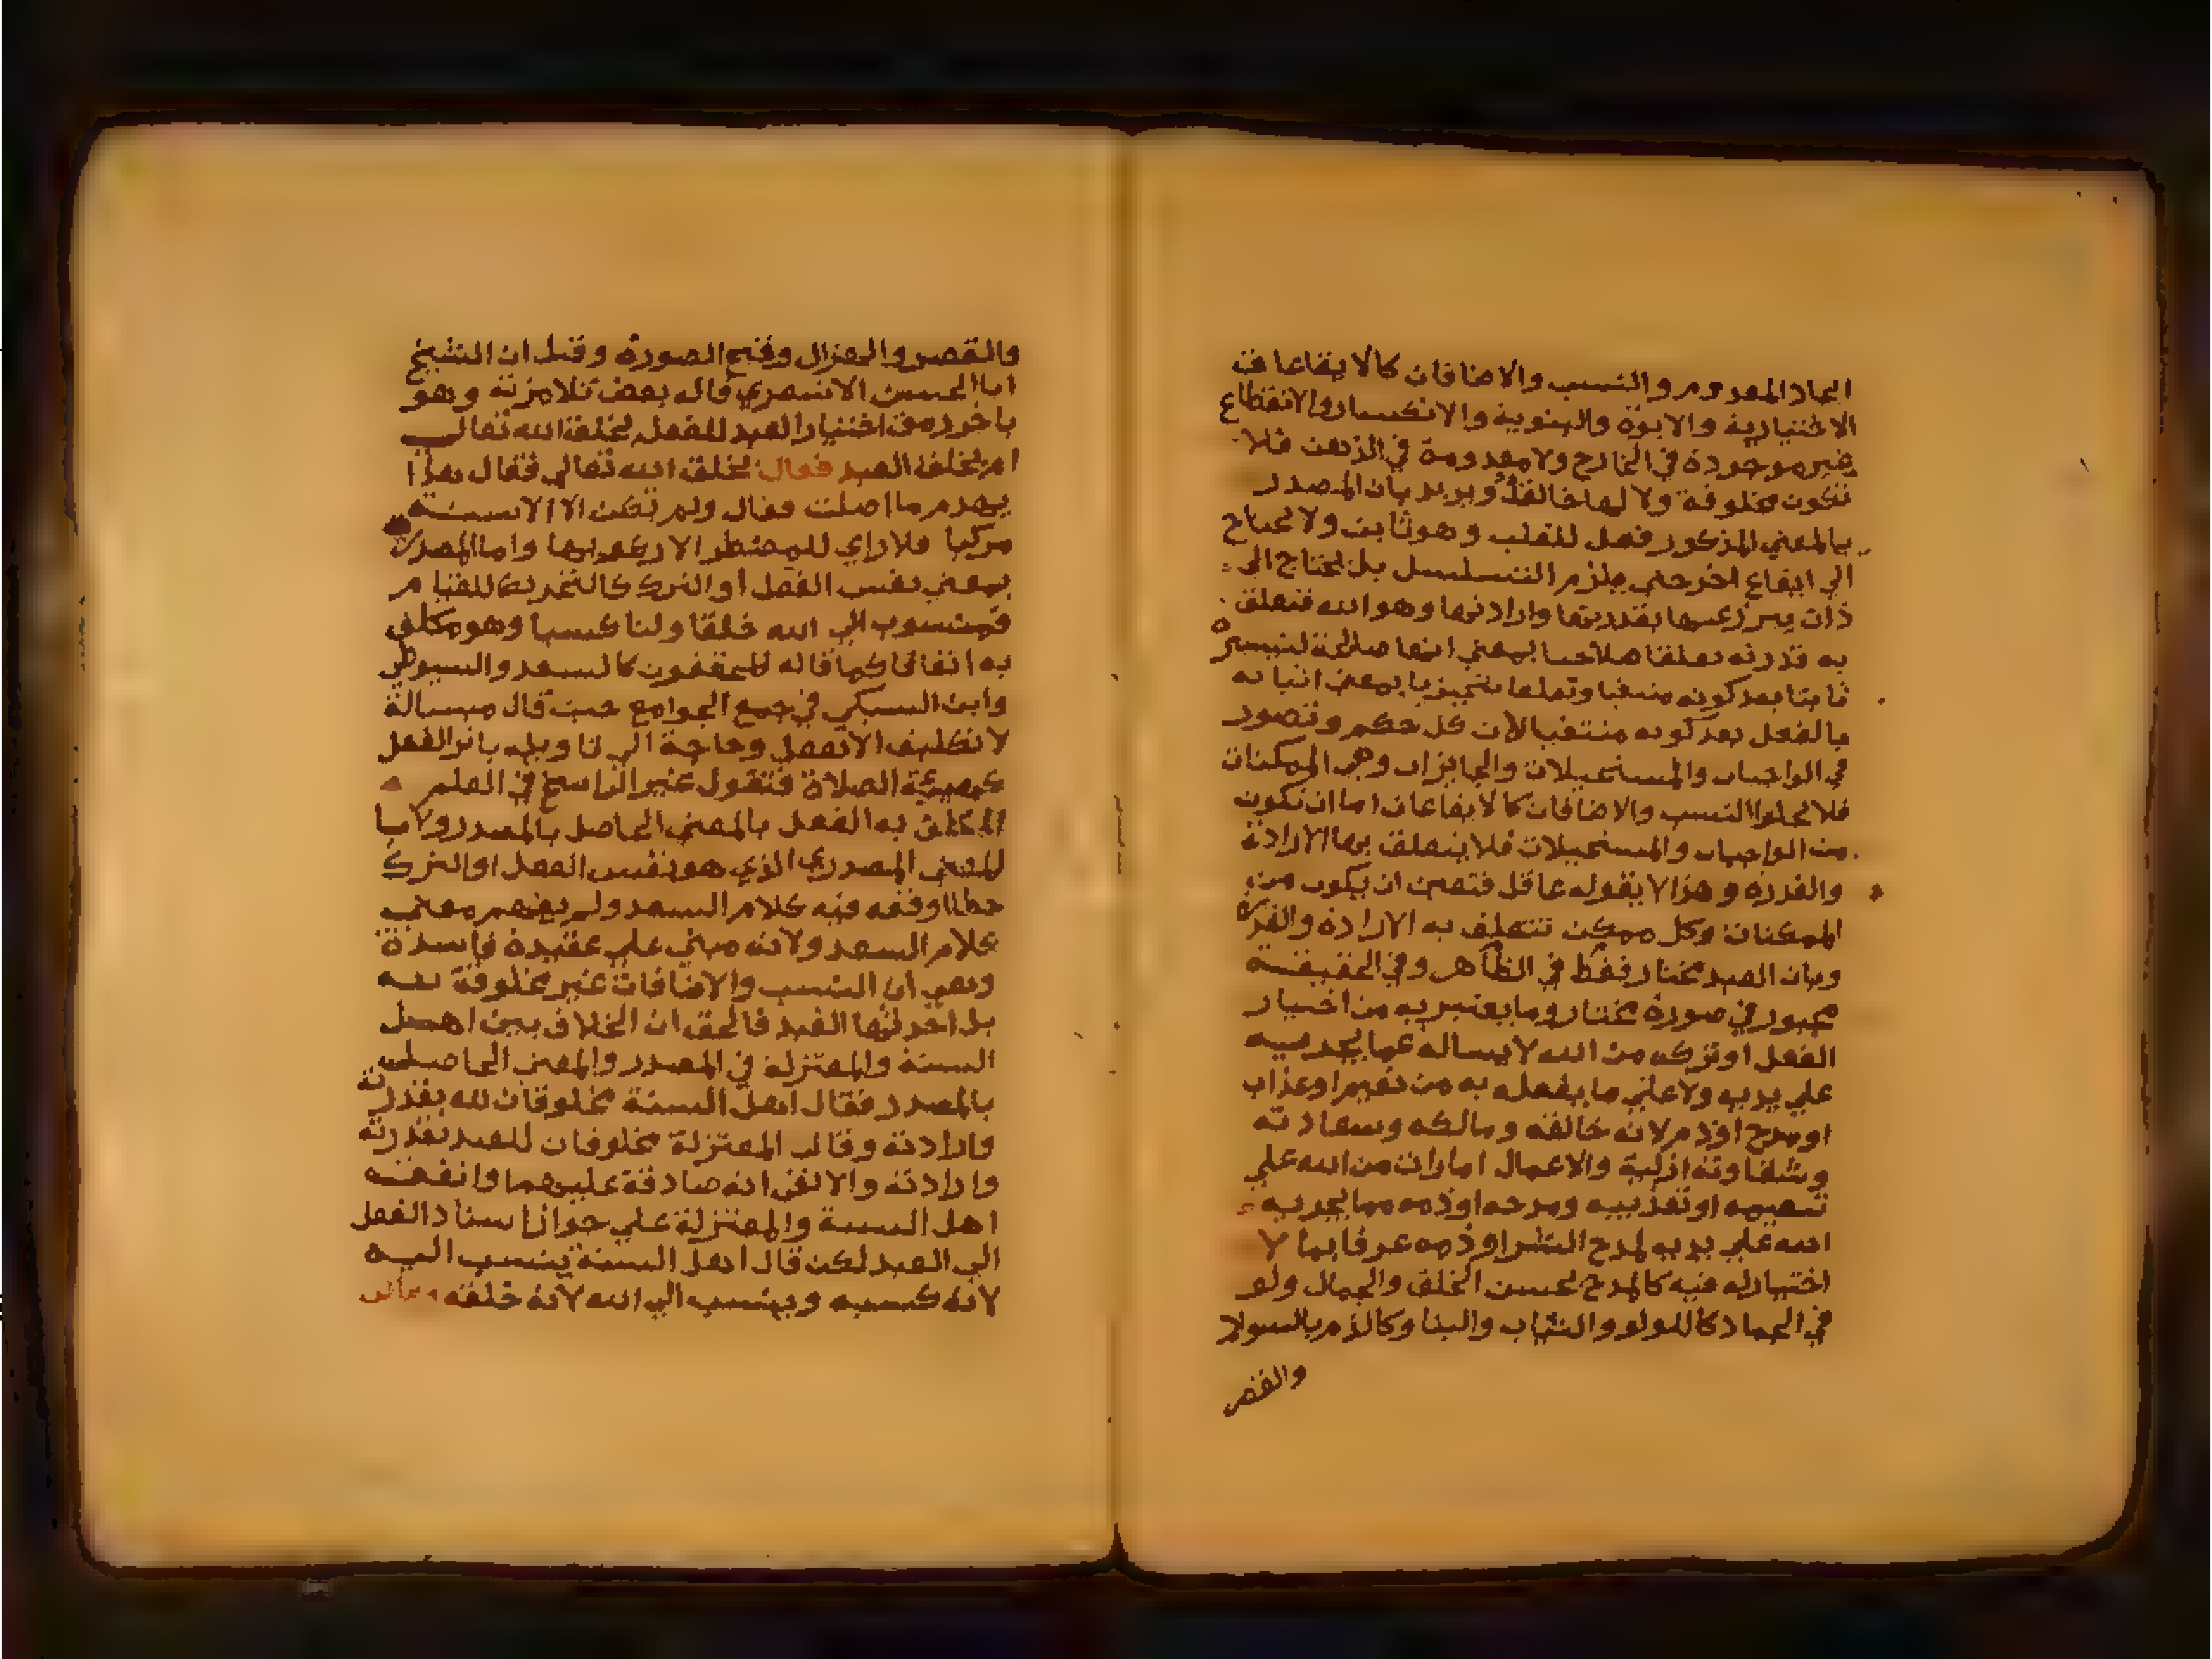 ايجاد المعدوم والنسب والاضافات كالايقاعات
الاختيارية والابوة والبنوية والانكسار والانقطاع
غير موجودة في الخارج ولا معدومة في الذهن فلا
تكون مخلوقة ولا لها خالقا ويريد بان المصدر
بالمعني المذكور فعل للقلب وهو ثابت ولا يحتاج
الي ايقاع اخر حتي يلزم التسلسل بل يحتاج الي
ذات بقدرتها وارادتها وهو الله فتعلق
به قدرته تعلقا صلاحيا بمعني انها صالحة
ثابتا بعد كونه منتفيا وتعلقا تنجيزيا بمعني اثباته
بالفعل بعد كونه منتفيا لان كل حكم وتصور
في الواجبات والمستحيلات والجايزات وهي الممكنات
فلا يخلوا النسب والاضافات كالايقاعات اما ان تكون
من الواجبات والمستحيلات فلا يتعلق بها الارادة
والقدرة وهذا لا يقوله عاقل فتعين ان يكون من
الممكنات وكل ممكن تتعلق به الارادة والقدرة
وبان العبد مختار فقط في الظاهر وفي الحقيقة
مجبور في صورة مختار وما يعتبر به من اختيار
الفعل او تركه من الله لا يساله عما يجريه
علي يديه ولا علي ما يفعله به من نعيم او عذاب
او مدح او ذم لانه خالقه ومالكه وسعادته
وشقاوته ازلية والاعمال امارات من الله علي
تنعيمه او تعذيبه ومدحه او ذمه مما يجريه
الله علي يديه لمدح البشر او ذمه عرفا بما لا
اختيار له فيه كالمدح لحسن الخلق والجمال ولو
في الجماد كاللولو والثياب والبنا وكالذم بالسواد
والقصر
والقصر والهزال وقبح الصورة وقيل ان الشيخ
ابا الحسن الاشعري قال بعض تلامذته وهو
ياخذ من اختيار العبد للفعل بخلق الله تعالي
ام بخلق العبد فقال بخلق الله تعالي فقال هذا
يهدم ما اصلت فقال ولم تكن الا الاسنة
مركبا فلا راي للمضطر الا ركوبها واما المصدر
بمعني نفس الفعل او الترك كالتحريك للقيام
فمنسوب الي الله خلقا ولنا كسبا وهو مكلف
به اتفاقا كما قاله المحققون كالسعد والسيوطي
وابن السبكي في جمع الجوامع حيث قال مسالة
لا تكليف الا بفعل وحاجة الي تاويله باثر الفعل
كهيئة الصلاة فتقول غير الراسخ في العلم
المكلف به الفعل بالمعني الحاصل بالمصدر ولا با
لمعني المصدري الذي هو نفس الفعل او الترك
خطا اوقعه فيه كلام السعد ولم يفهم معني
كلام السعد ولانه مبني علي عقيدة فاسدة
وهي ان النسب والاضافات غير مخلوقة لله
بل احدثها العبد فالحق ان الخلاف بين اهل
السنة والمعتزلة في المصدر والمعني الحاصل
بالمصدر فقال اهل السنة مخلوقان لله بقدرته
وارادته وقالت المعتزلة مخلوقان للعبد بقدرته
وارادته والاتفق انه صادقة عليهما واتفقت
اهل السنة والمعتزلة علي جواز اسناد الفعل
الي العبد لكن قال اهل السنة ينسب اليه
لانه كسبه وينسب الي الله لانه خلقه